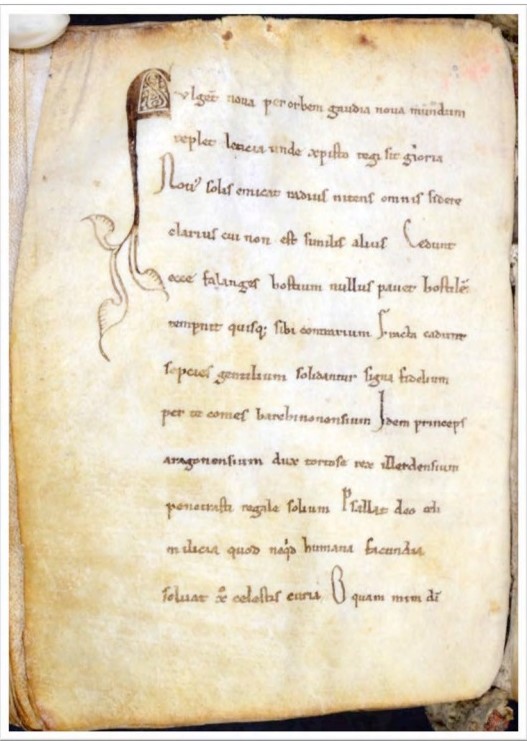 Fulget nova per orbem gaudia nova mundum
replet leticia unde xpisto regi sit gloria
Nou' solis emicat radius nitens omnis sidere
clarius cui non est similis alius Cedunt
ecce falanges hostium nullus pavet hostilē
tempnit quisq; sibi contrarium Fracta cadunt
sepcies gentilium solidantur signa fidelium
per te comes barchinonensium Idem princeps
aragonensium dux tortose rex illerdensium
penetrasti regale solium Psallat deo celi
milicia quod neq̄d humana facundia
soluat x̄ celestis curia O quam mirū dī